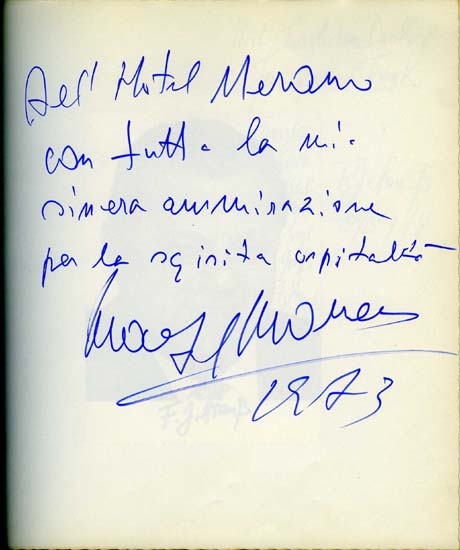 All' Hotel Merano
con tutta la mia
sincera ammirazione
per la sqisita ospitalità
1973